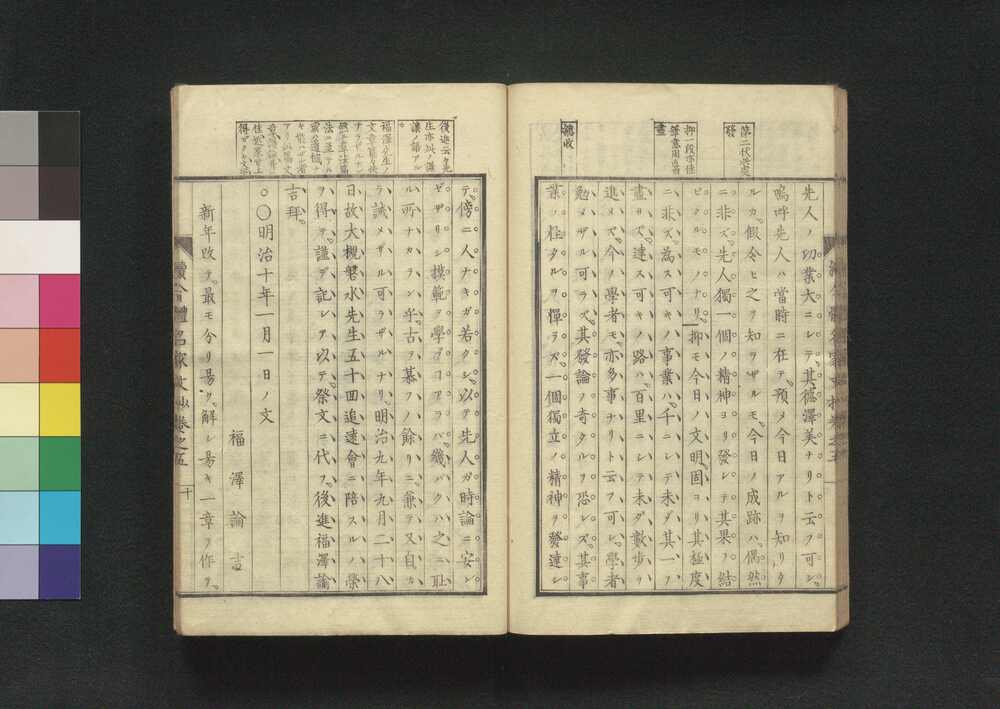 先人ノ功業大ニシテ其德澤美ナリト云フ可シ。
嗚呼先人ハ當時ニ在テ預メ今日アルヲ知リタ
ルカ。假令ヒ之ヲ知ヲザルモ。今日ノ成跡ハ偶然
ニ非ズ。先人獨一個ノ精神ヨリ發シテ其果ヲ結
ビタルモノナリ。抑モ今日ノ文明固ヨリ其極度
ニ非ズ。為ス可キノ事業ハ千ニシテ未ダ其一ヲ
盡サズ。達ス可キノ路ハ百里ニシテ未ダ數歩ヲ
進メズ。今ノ學者モ亦多事ナリト云フ可シ。學者
勉メザル可ラズ。其發論ノ奇タルヲ恐レズ。其事
業ノ粗タルヲ憚ラズ。一個獨立ノ精神ヲ發達シ
總收
テ。傍ニ人ナキガ若クシ。以テ先人ガ時論ニ安ン
ゼザリシ模範ヲ學ブコアラバ。幾バクハ之ニ耻
ル所ナカラン乎。古ヲ慕フノ餘リニ兼テ又自カ
ラ誡メザル可ラザルナリ。明治九年九月二十八
日故大槻磐水先生五十回追遠會ニ陪スルノ榮
ヲ得テ。謹デ記シ之ヲ以テ祭文ニ代フ。後進福澤諭
吉拜。
○○明治十年一月一日ノ文
福澤諭吉
新年改テ。最モ分リ易ク。解シ易キ一章ヲ作ラ。
續今體名家文抄卷之五
十